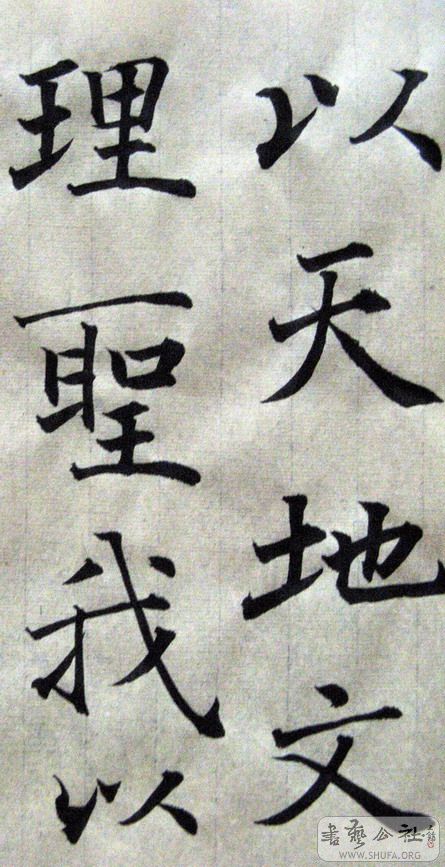 以天地文
理聖我以
書藝公社
WWW.SHUFA.ORG